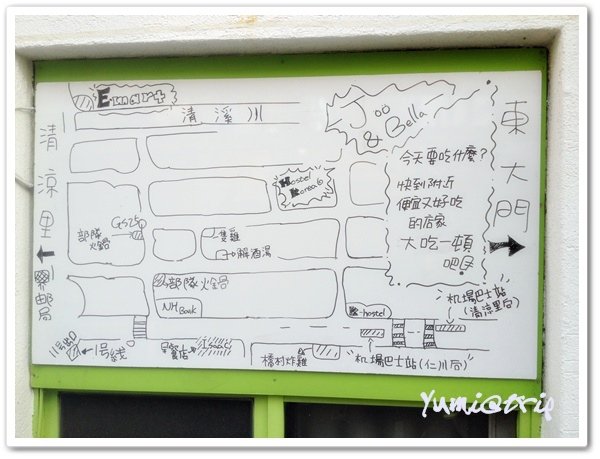 Emart
清溪川
Joo
& Bella
東大門
清涼里
郵局
今天要吃什麼?
快到附近
便宜又好吃
的店家
大吃一頓
吧
Hostel
Korea 6
GS25
部隊
火鍋
隻雞
解酒湯
部隊火鍋
NH Bank
K-hostel
机場巴士站
(清涼里方向)
机場巴士站(仁川方向)
橋村炸雞
飯店
1号線
Yumi@trip